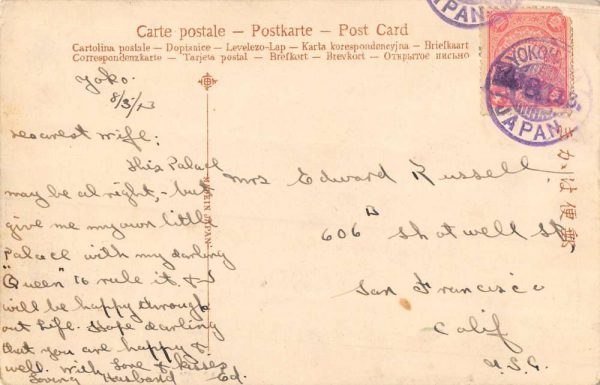 Carte postale – Postkarte – Post Card
Cartolina postale – Dopisnice – Levelezo-Lap – Karta korespondencyjna – Briefkaart
Correspondenzkarte – Tarjeta postal – Brefkort – Brevkort – Открытое письмо
YOKOHAMA
JAPAN
JAPAN
きがは便郵
MADE IN JAPAN
Yoko.
8/3/13
Dearest Wife;
This Palace
may be al right, – but
give me my own little
Palace with my darling
"Queen" to rule it & I
will be happy through
out life. Hope darling
that you are happy &
well. With Love & kisses
Loving Husband Ed.
Mrs Edward Russell.
606 B Shotwell St.
San Francisco
Calif
U.S.